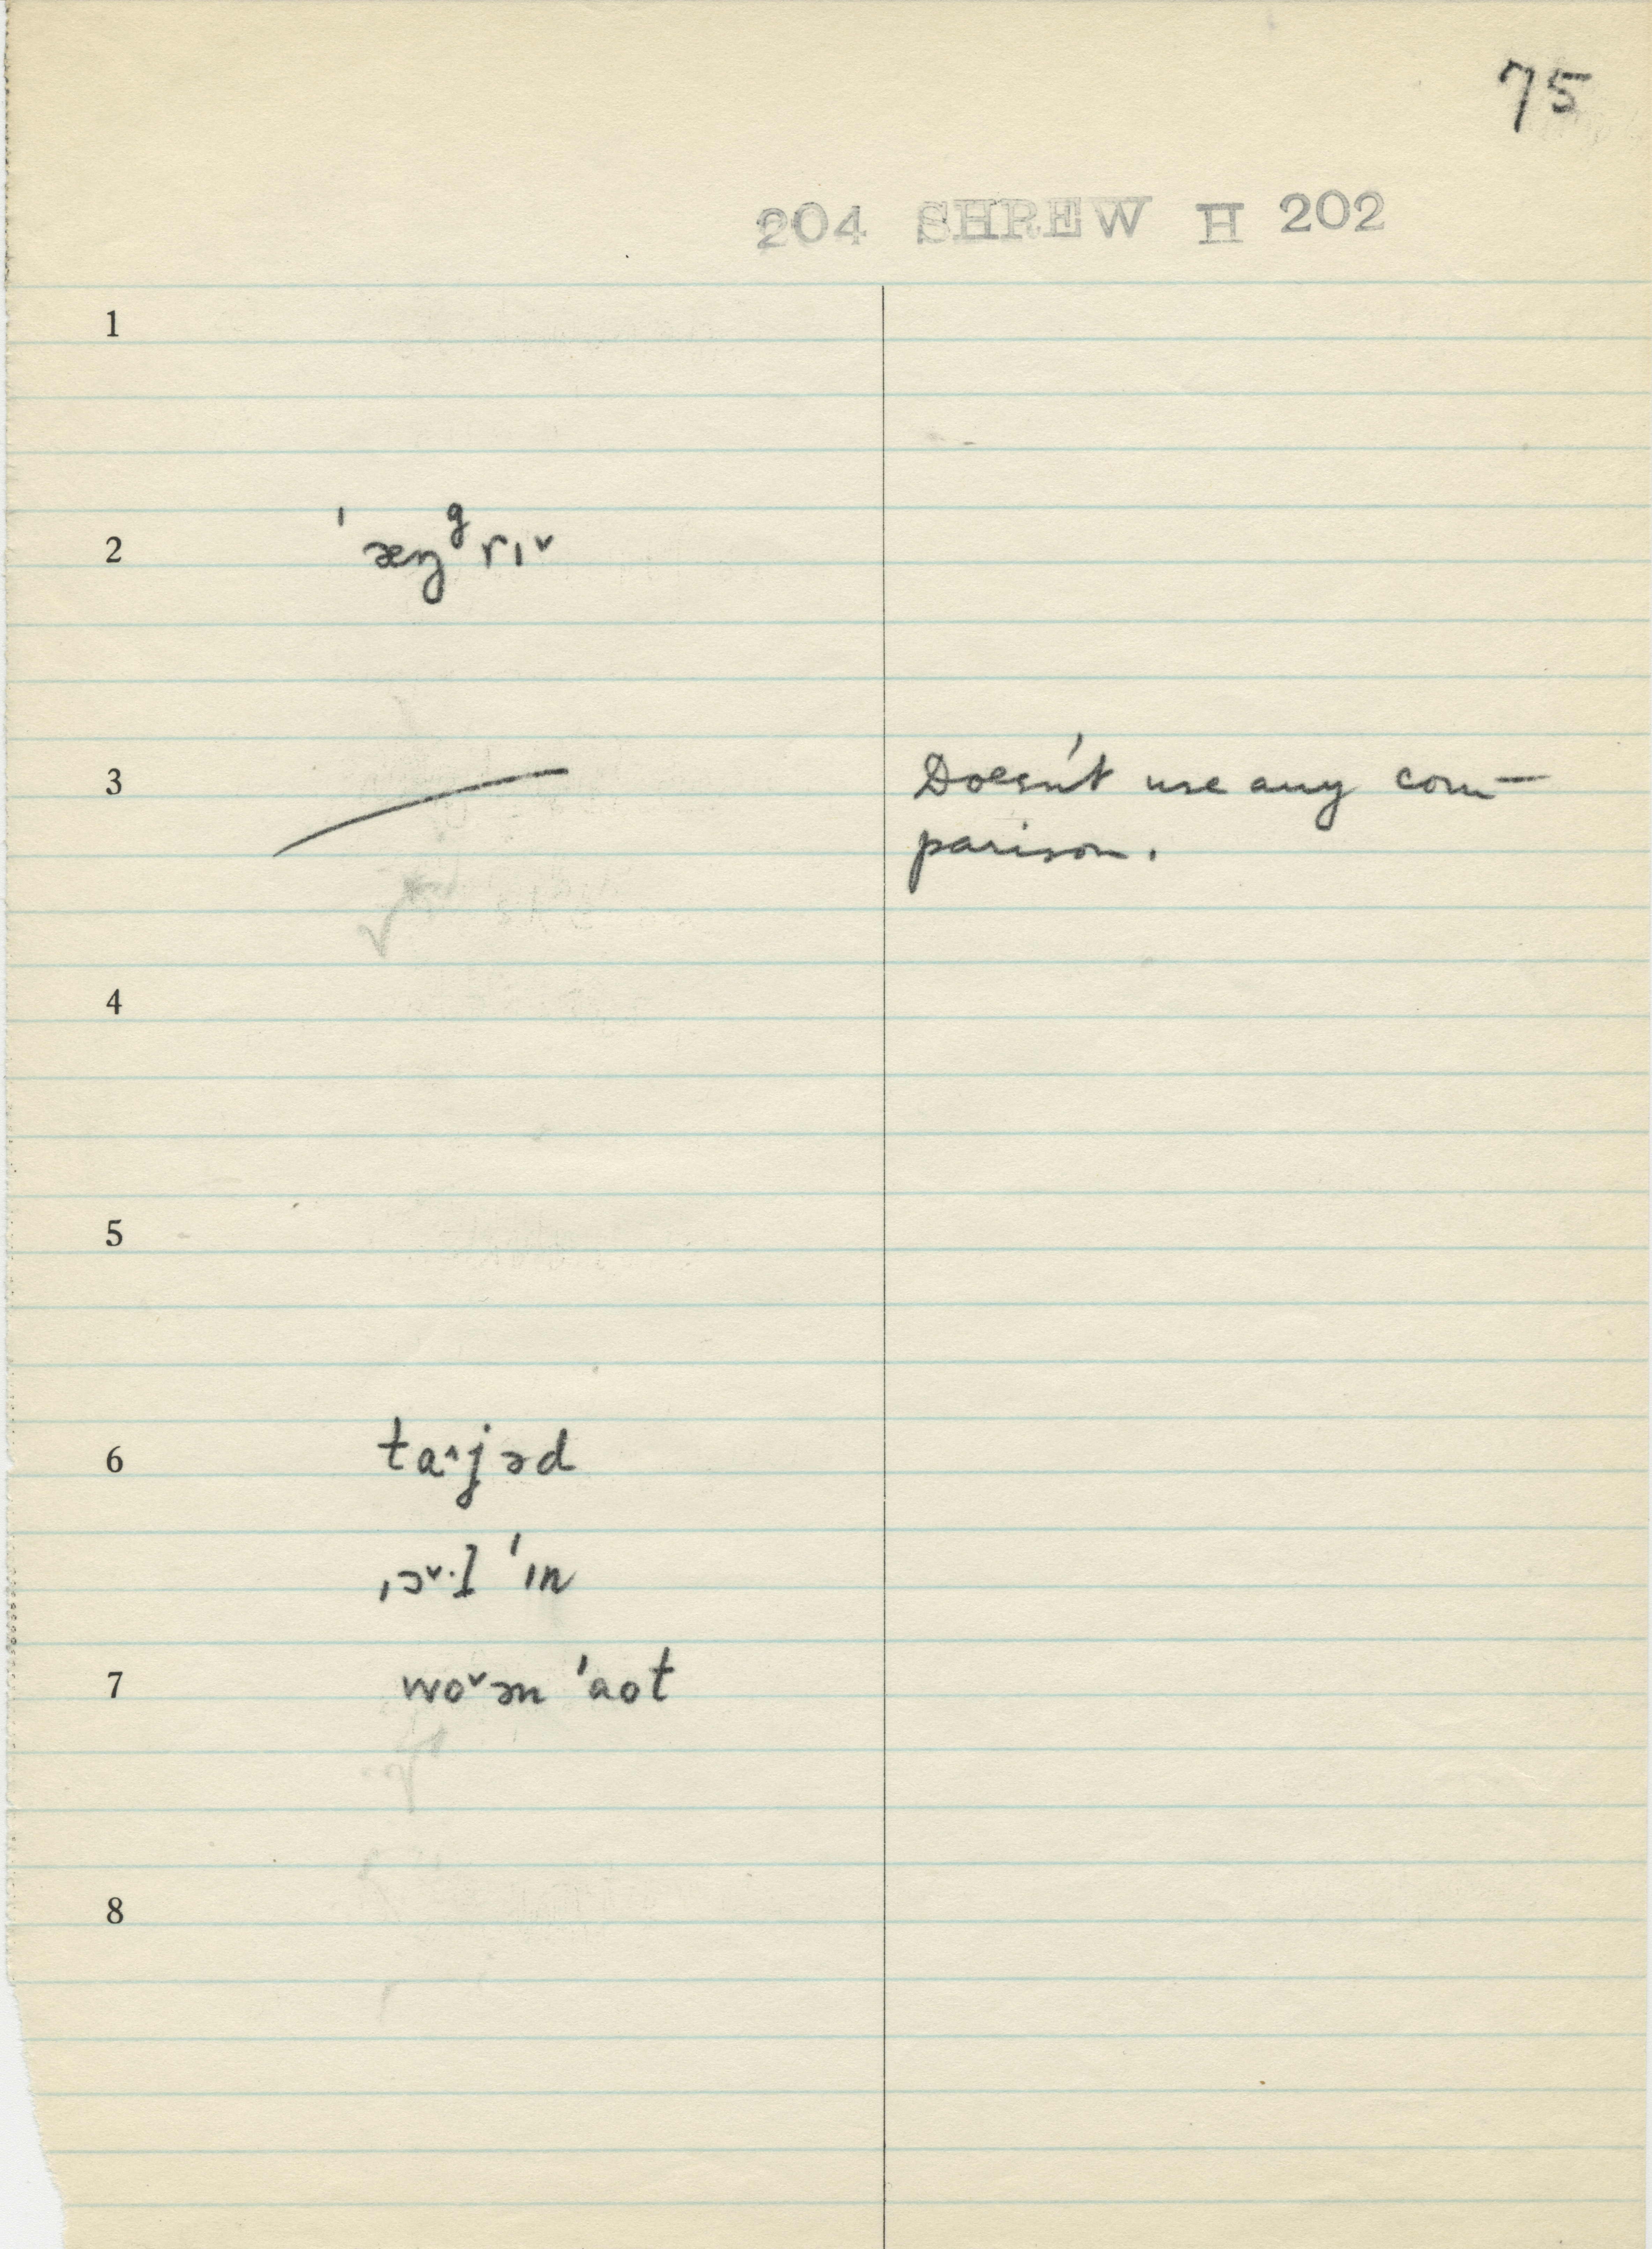 75
204 SHREW H 202
1
2 ˈæŋᵍrɪ˅
3 Doesn't use any com-
parison.
4
5
6 ta˄jəd
ˌɔ˅·l ˈɪn
7 wo˅ən ˈaot
8